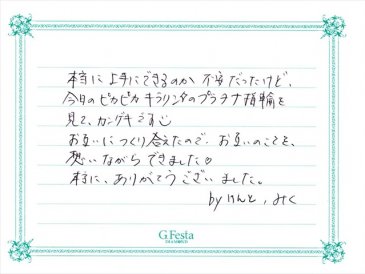 本当に上手にできるのか不安だったけど、
今日のピカピカキラリンのプラチナ指輪を
見て、カンゲキです
お互いにつくり合えたので、お互いのことを、
想いながらできました♡
本当に、ありがとうございました。
by けんと、みく
G.Festa
DIAMOND